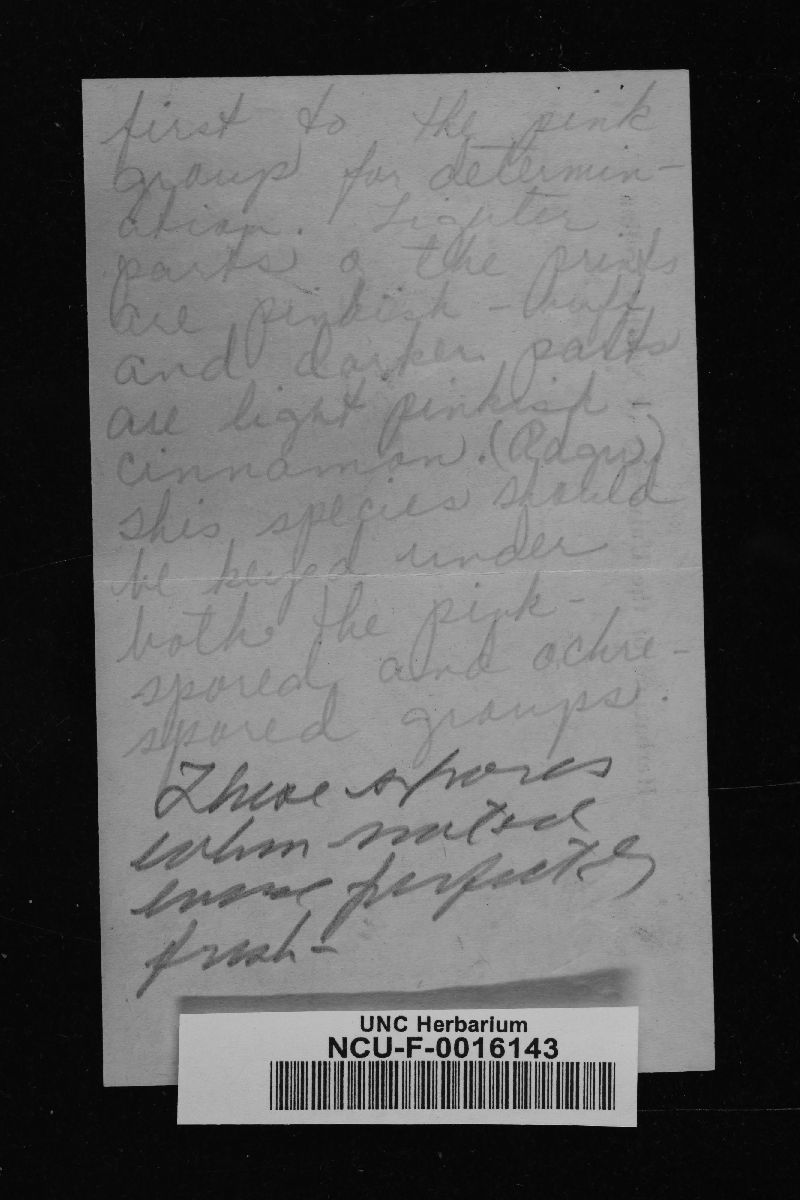 first to the pink
group for determin-
ation. Lighter
parts o the prints
are pinkish-buff
and darker parts
are light pinkish-
cinnamon. (Rdgw.)
This species should
be keyed under
both the pink-
spored and ochre-
spored groups.
These spores
when noted
were perfectly
fresh-
UNC Herbarium
NCU-F-0016143